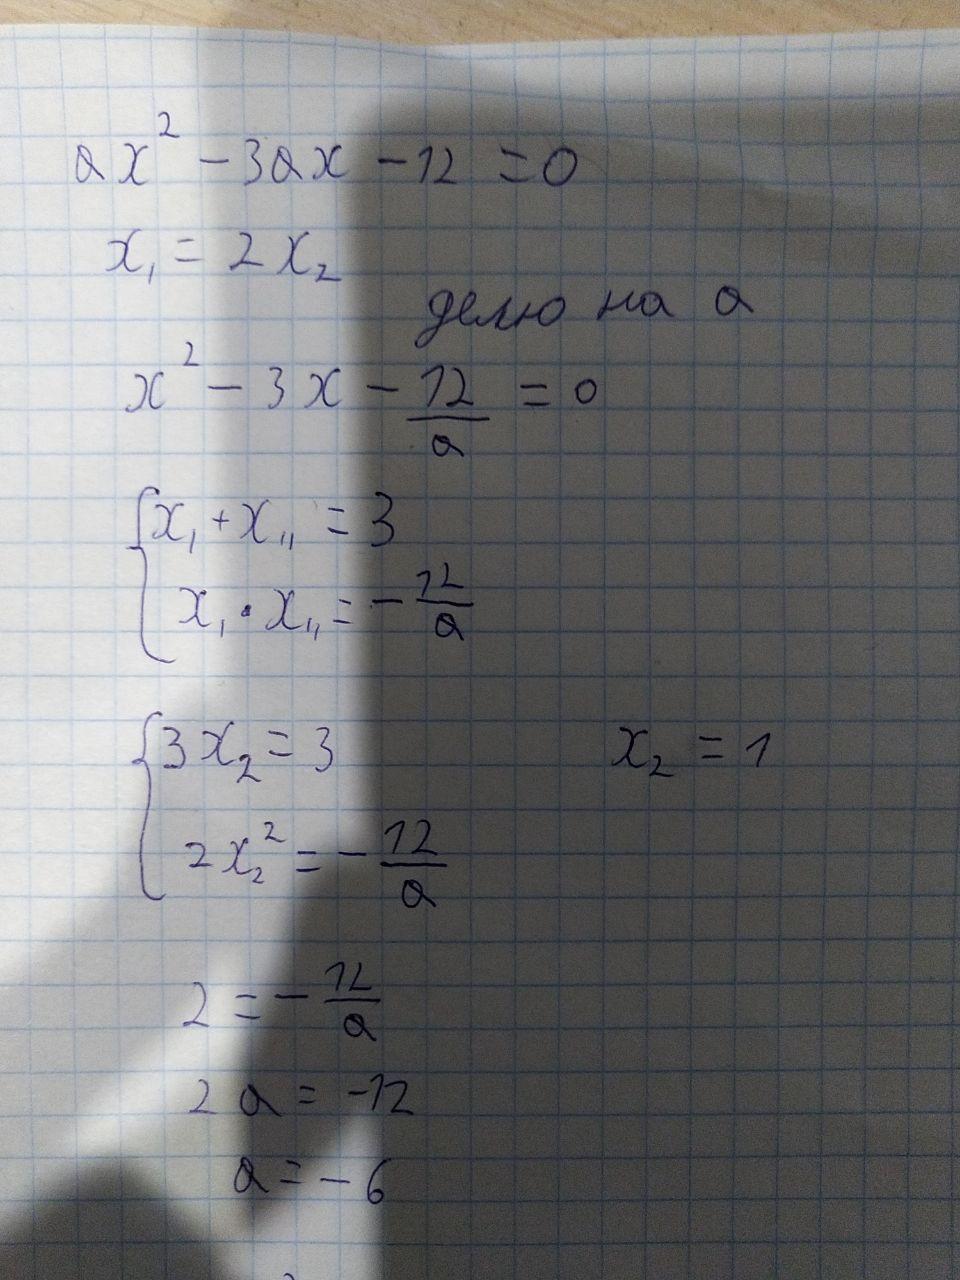 ax² - 3ax - 12 = 0
x₁ = 2x₂
делю на a
x² - 3x - 12/a = 0
{ x₁ + x₁₁ = 3
x₁ · x₁₁ = - 12/a
{ 3x₂ = 3 x₂ = 1
2x₂² = - 12/a
2 = - 12/a
2a = -12
a = - 6